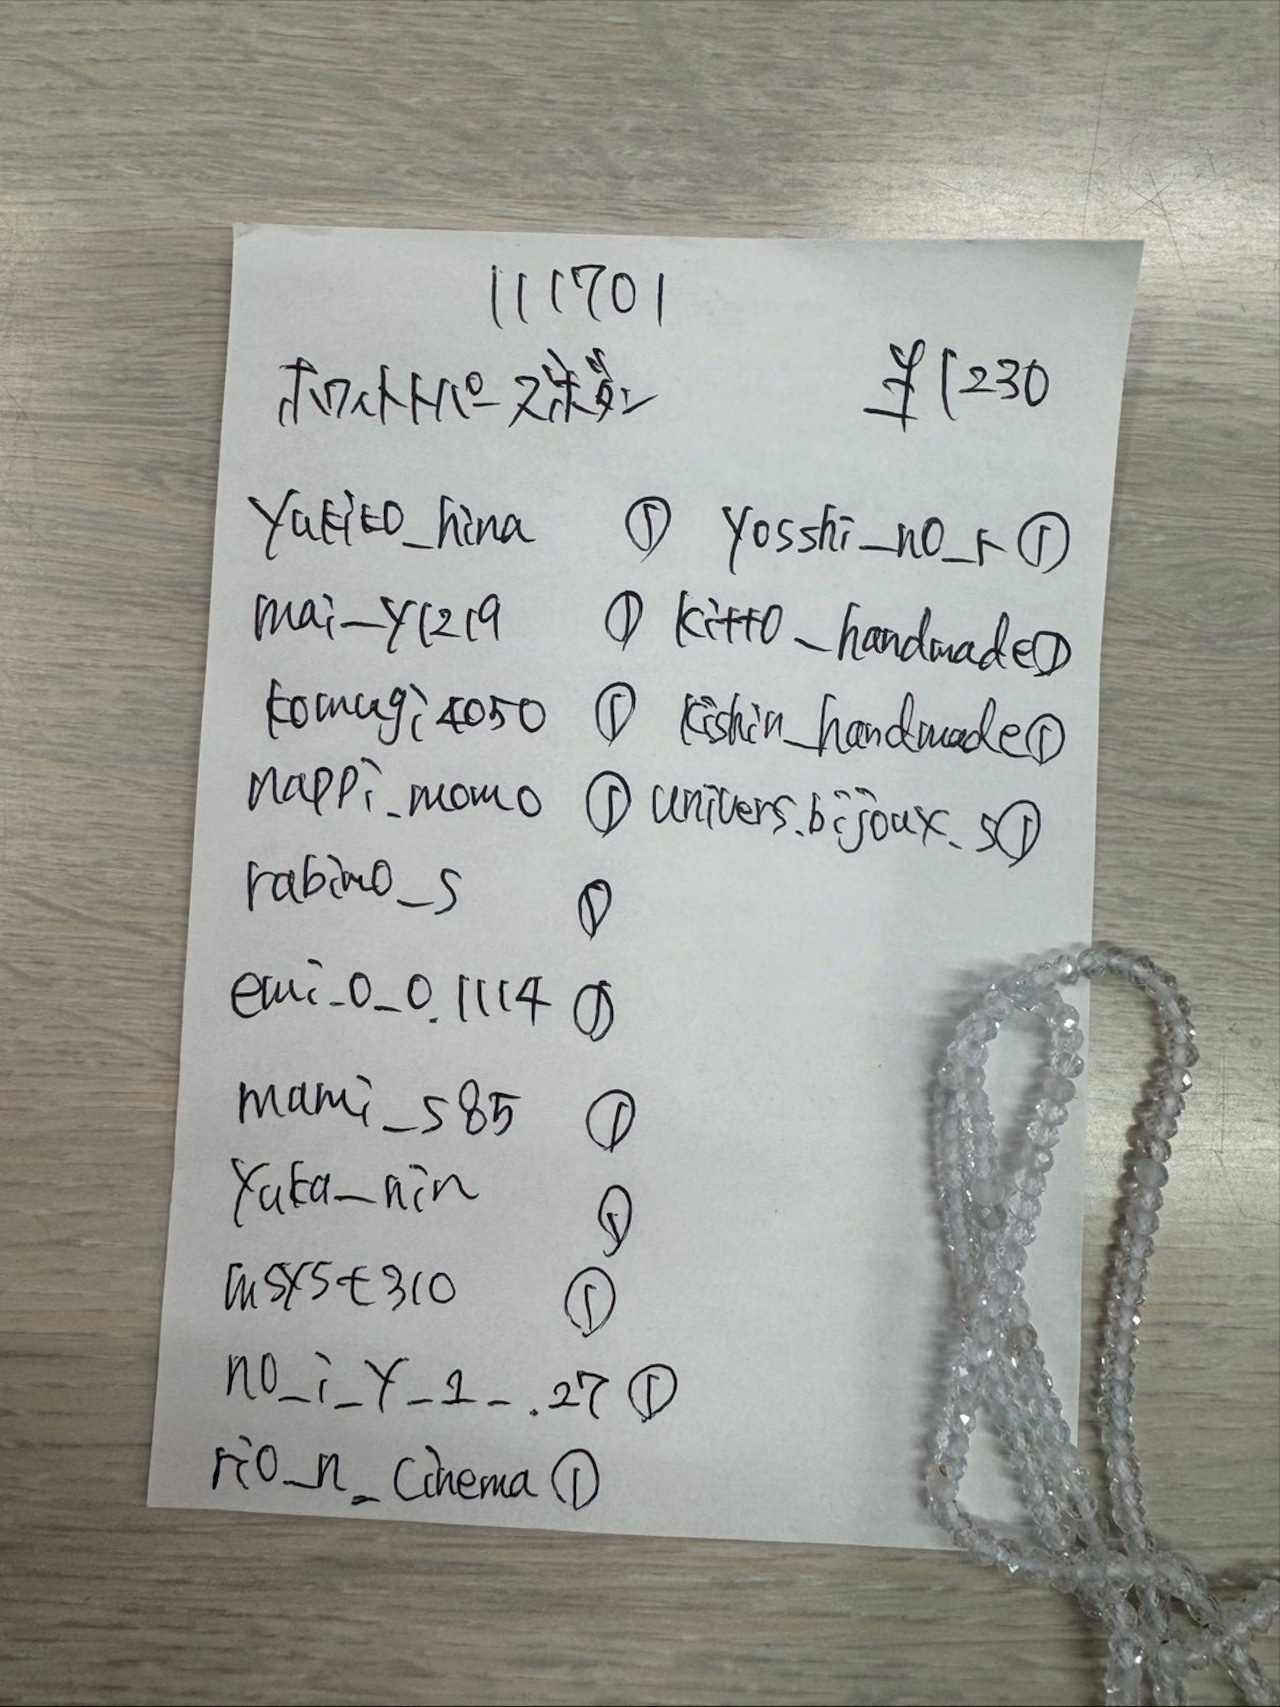 111701
ホワイトトパーズボタン ¥1230
yukito_hina ①
mai_y1219 ①
komugi4050 ①
nappi_momo ①
rabimo_s ①
emi_o_o.1114 ①
mami_s85 ①
yuka_nin ①
msyst310 ①
no_i_y_1_.27 ①
rio_n_cinema ①
yosshi_no_r ①
kitto_handmade ①
kishin_handmade ①
univers.bijoux.s ①